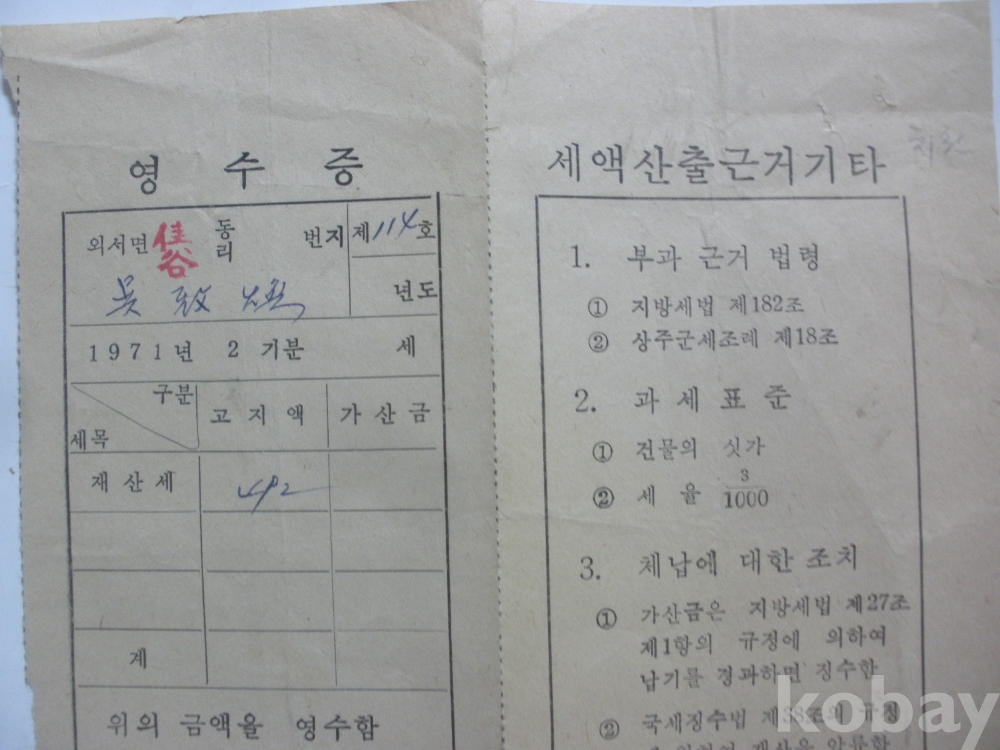 영 수 증
외서면 佳谷 동리 번지 제114호
吳 致
년도
1971년 2 기분 세
구분
세목
고 지 액 가 산 금
재 산 세 492
계
위의 금액을 영수함
세액산출근거기타
1. 부과 근거 법령
① 지방세법 제182조
② 상주군세조례 제18조
2. 과 세 표 준
① 건물의 싯가
② 세 율 3/1000
3. 체납에 대한 조치
① 가산금은 지방세법 제27조
제1항의 규정에 의하여
납기를 경과하면 징수한
② 국세징수법 제38조의 규정
kobay